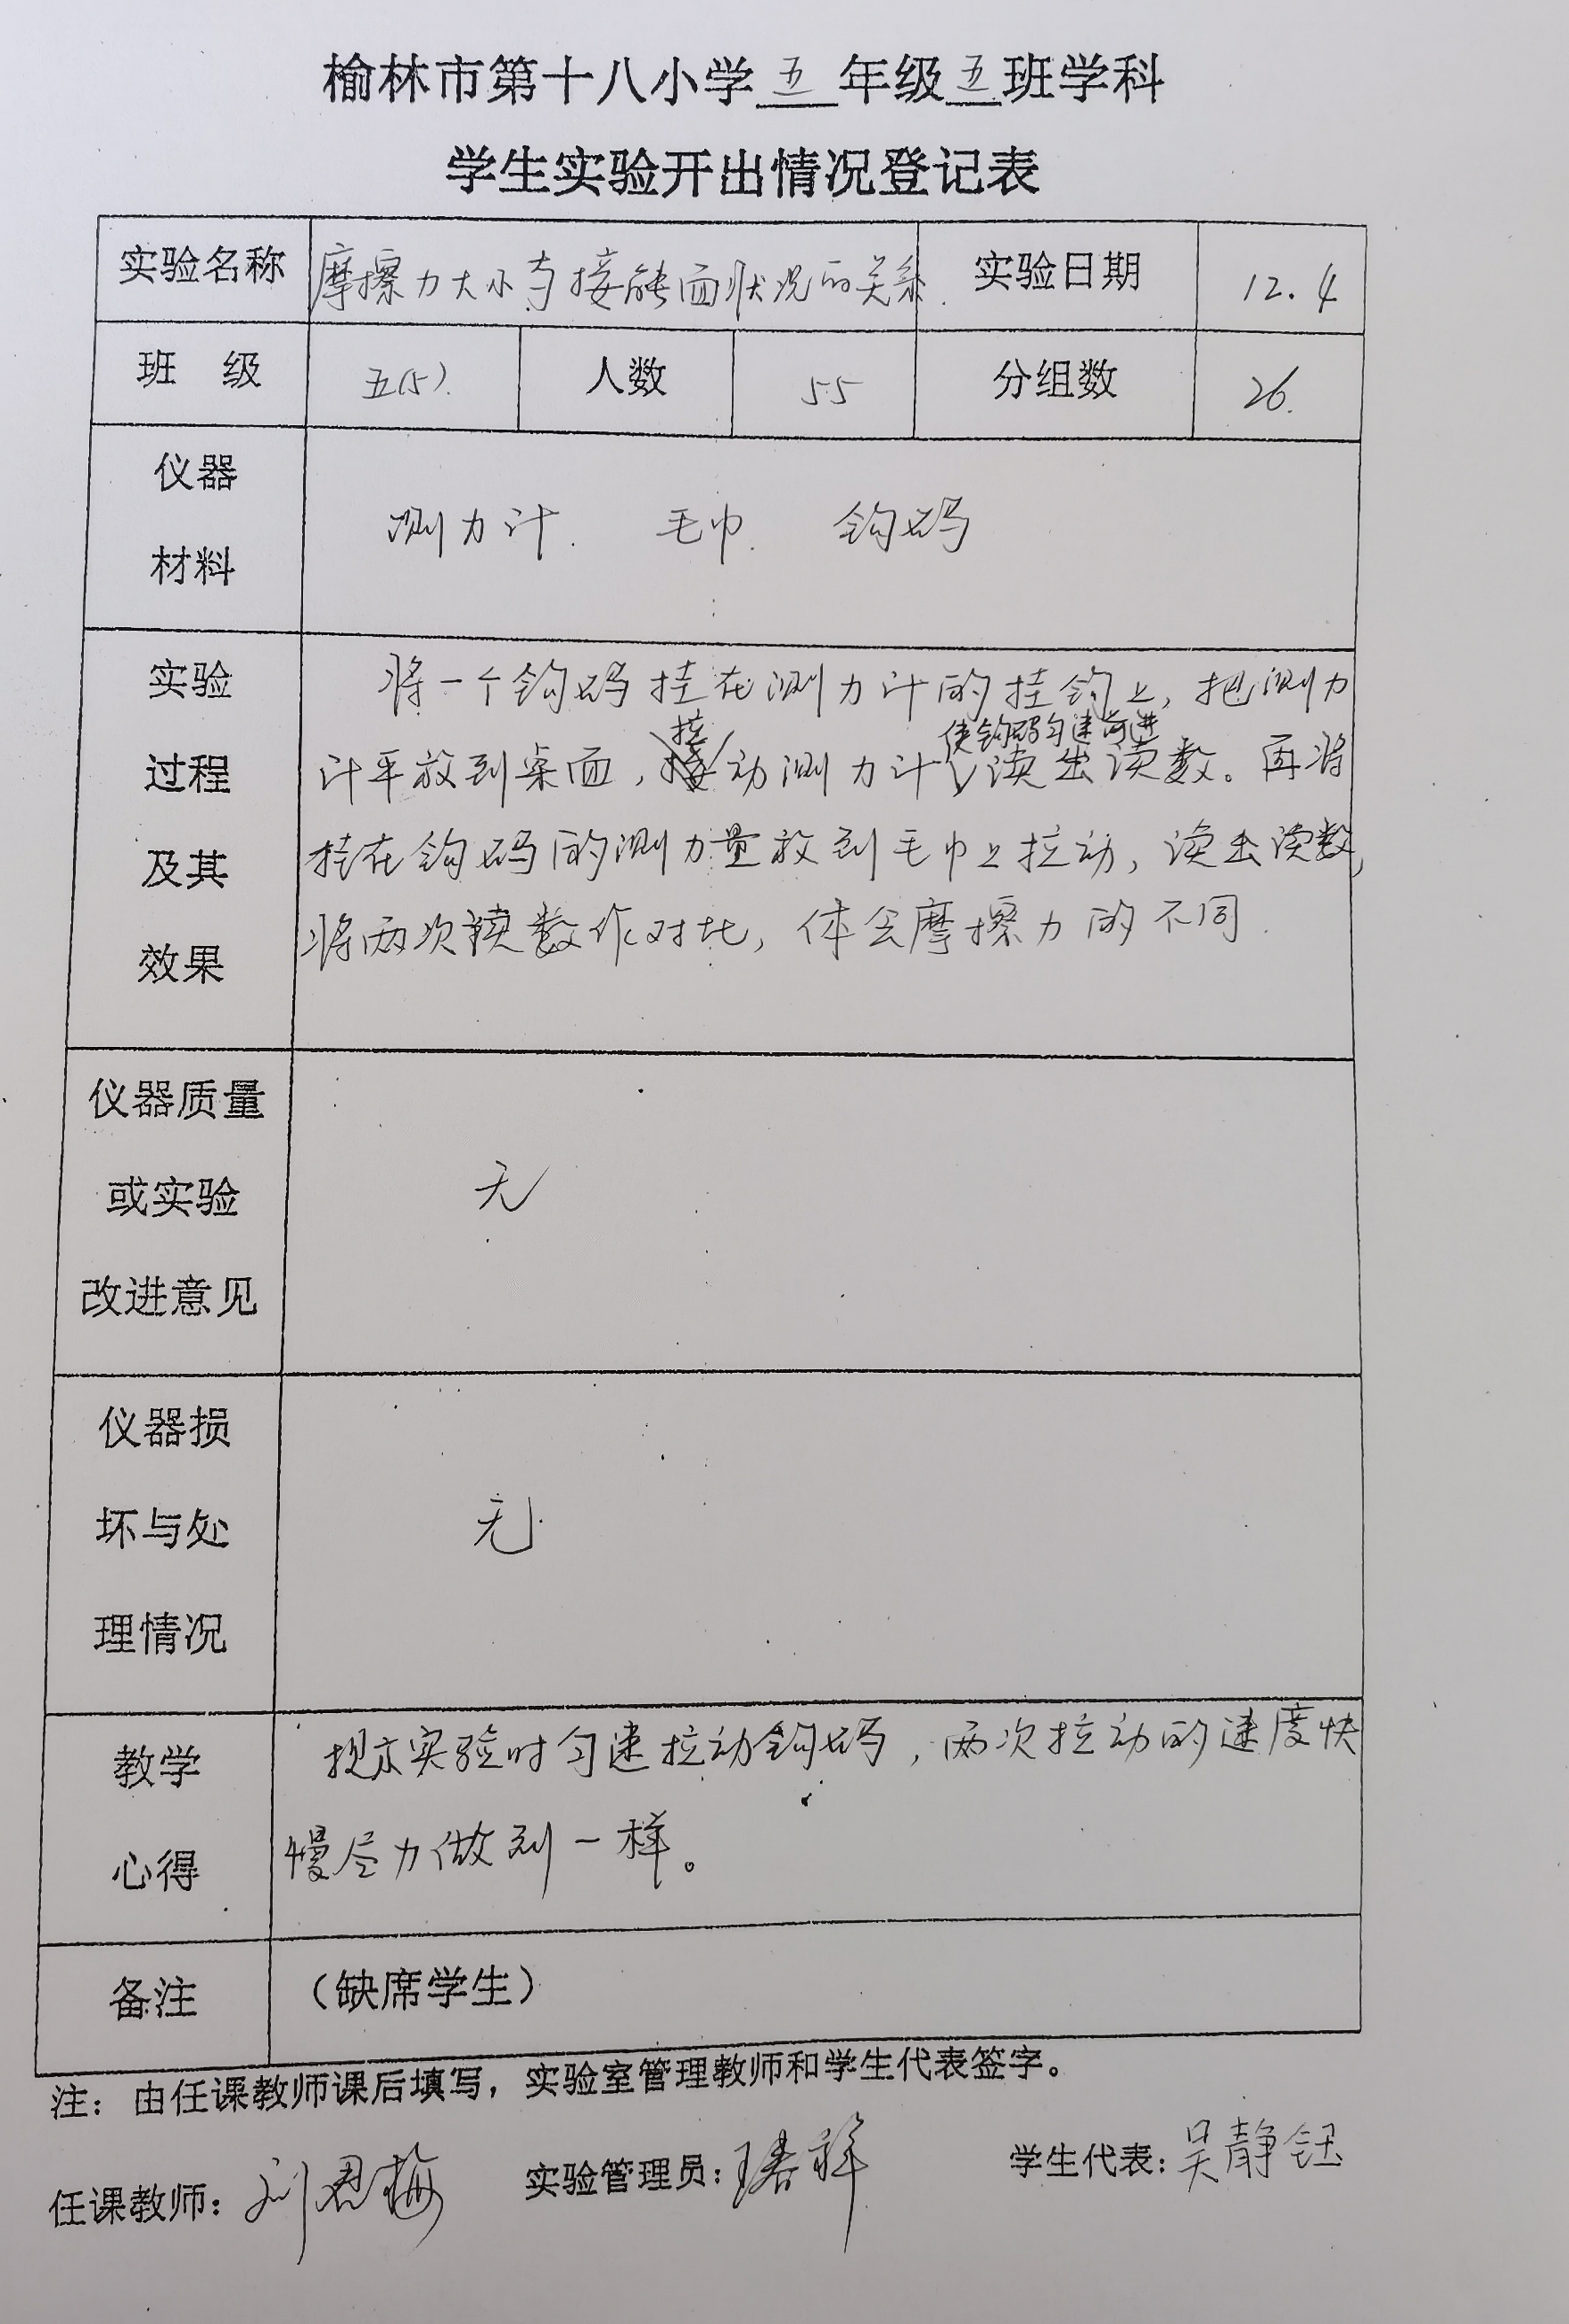 榆林市第十八小学五年级五班学科
学生实验开出情况登记表
实验名称 摩擦力大小与接触面状况的关系. 实验日期 12.4
班 级 五(5). 人数 55 分组数 26.
仪器
材料
测力计. 毛巾. 钩码
实验
过程
及其
效果
将一个钩码挂在测力计的挂钩上,把测力
计平放到桌面,拉动测力计使钩码匀速前进读出读数。再将
挂在钩码的测力量放到毛巾上拉动,读出读数,
将两次读数作对比,体会摩擦力的不同.
仪器质量
或实验
改进意见
无
仪器损
坏与处
理情况
无
教学
心得
提示实验时匀速拉动钩码,两次拉动的速度快
慢尽力做到一样。
备注 (缺席学生)
注:由任课教师课后填写,实验室管理教师和学生代表签字。
任课教师: 刘君梅 实验管理员: 学生代表:吴静钰